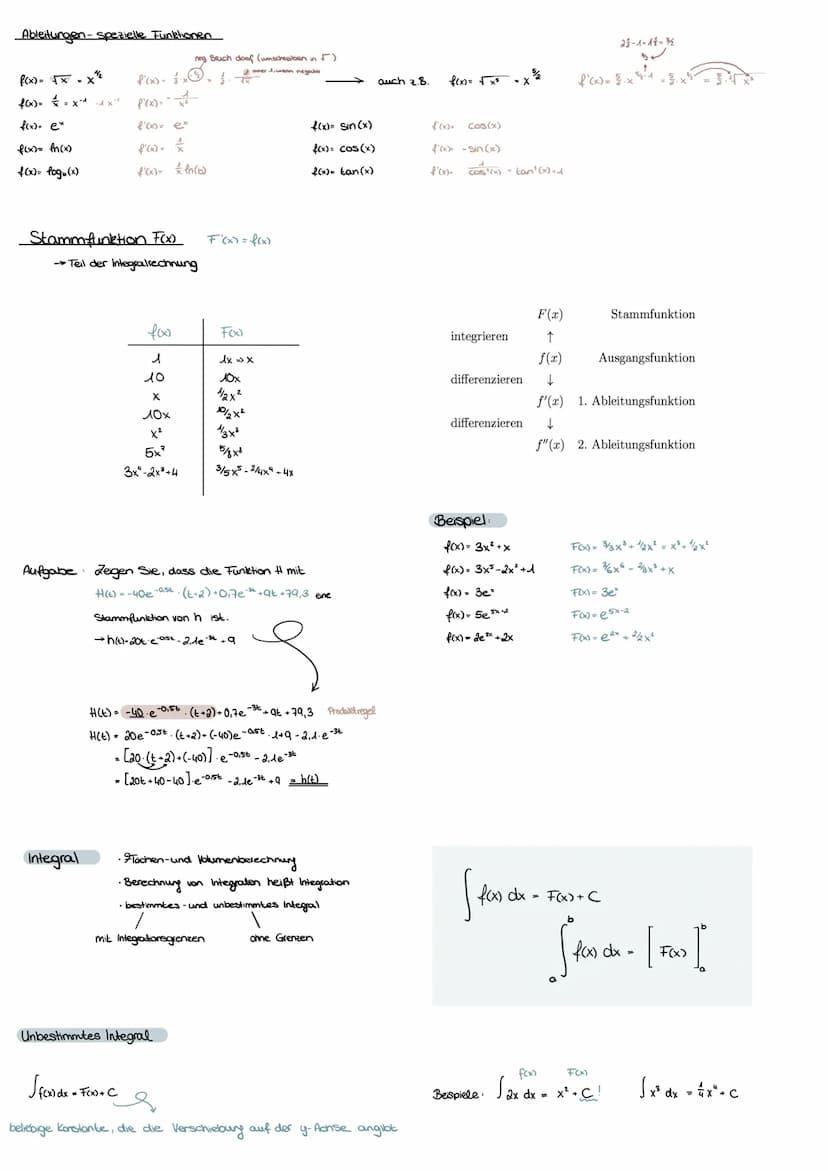 Ableitungen - spezielle Funktionen
neg. Bruch darf (umschreiben in √ )
f(x) = √x = x^½ f'(x) = ½ · x = ½ · 1/√x → auch z.B. f(x) = √x⁵ = x^5/2
f(x) = 1/x = x⁻¹ -1x⁻² f'(x) = -1/x²
f(x) = eˣ f'(x) = eˣ f(x) = sin(x) f'(x) = cos(x)
f(x) = ln(x) f'(x) = 1/x f(x) = cos(x) f'(x) = -sin(x)
f(x) = log_b(x) f'(x) = 1/x ln(b) f(x) = tan(x) f'(x) = 1/cos²(x) = tan²(x)+1
Stammfunktion F(x) F'(x) = f(x)
→ Teil der Integralrechnung
f(x) F(x)
1 1x ⇒ x
10 10x
x ½x²
10x 10/2x²
x² ⅓x³
5x⁷ 5/8x⁸
3x⁴-2x³+4 3/5x⁵ - 2/4x⁴ + 4x
F(x) Stammfunktion
integrieren ↑
f(x) Ausgangsfunktion
differenzieren ↓
f'(x) 1. Ableitungsfunktion
differenzieren ↓
f''(x) 2. Ableitungsfunktion
Beispiel:
f(x) = 3x²+x F(x) = 3/3x³ + ½x² = x³ + ½x²
f(x) = 3x⁵-2x²+1 F(x) = 3/6x⁶ - 2/3x³ + x
f(x) = 3eˣ F(x) = 3eˣ
f(x) = 5e^5x-2 F(x) = e^5x-2
f(x) = 2e^2x + 2x F(x) = e^2x + 2/2x²
Aufgabe: Zeigen Sie, dass die Funktion H mit
H(t) = -40e^-0,5t · (t+2)+0,7e^-3t+9t+79,3 eine
Stammfunktion von h ist.
→ h(t) = 20t·e^-0,5t - 2,1e^-3t + 9
H(t) = -40·e^-0,5t · (t+2)+0,7e^-3t+9t+79,3 Produktregel
H(t) = 20e^-0,5t · (t+2)+(-40)e^-0,5t · 1+9 - 2,1·e^-3t
= [20·(t+2)+(-40)]·e^-0,5t - 2,1e^-3t
= [20t+40-40]·e^-0,5t - 2,1e^-3t + 9 = h(t)
Integral · Flächen- und Volumenberechnung
· Berechnung von Integralen heißt Integration
· bestimmtes - und unbestimmtes Integral
mit Integrationsgrenzen ohne Grenzen
∫ f(x) dx = F(x) + C
∫ₐᵇ f(x) dx = [F(x)]ₐᵇ
Unbestimmtes Integral
f(x) F(x)
∫f(x)dx = F(x)+C Beispiele: ∫2x dx = x² + C! ∫x³ dx = ¼x⁴ + C
beliebige Konstante, die die Verschiebung auf der y-Achse angibt